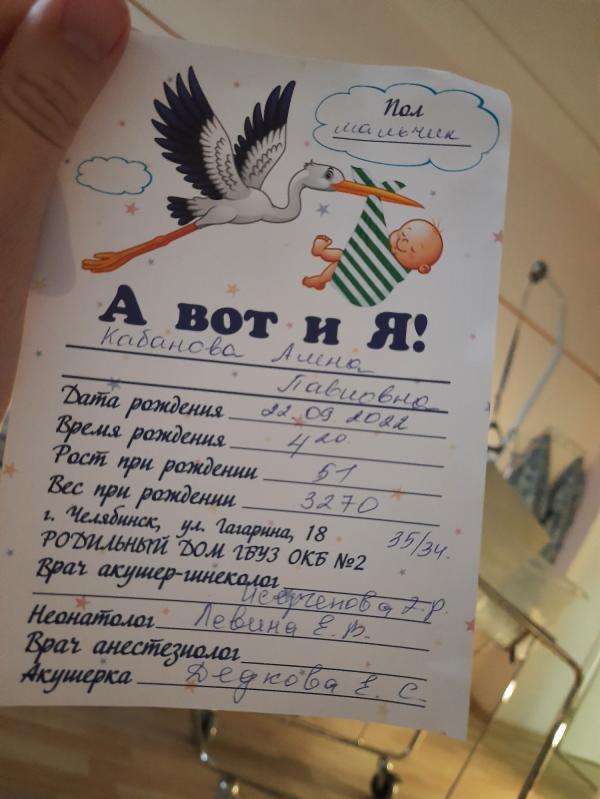 Пол
мальчик
А вот и Я!
Кабанова Алена
Павловна
Дата рождения 22.09.2022
Время рождения 4 20
Рост при рождении 51
Вес при рождении 3270
г. Челябинск, ул. Гагарина, 18
35/34.
РОДИЛЬНЫЙ ДОМ ГБУЗ ОКБ №2
Врач акушер-гинеколог
Неонатолог Левина Е. В.
Врач анестезиолог
Акушерка Дедкова Е. С.